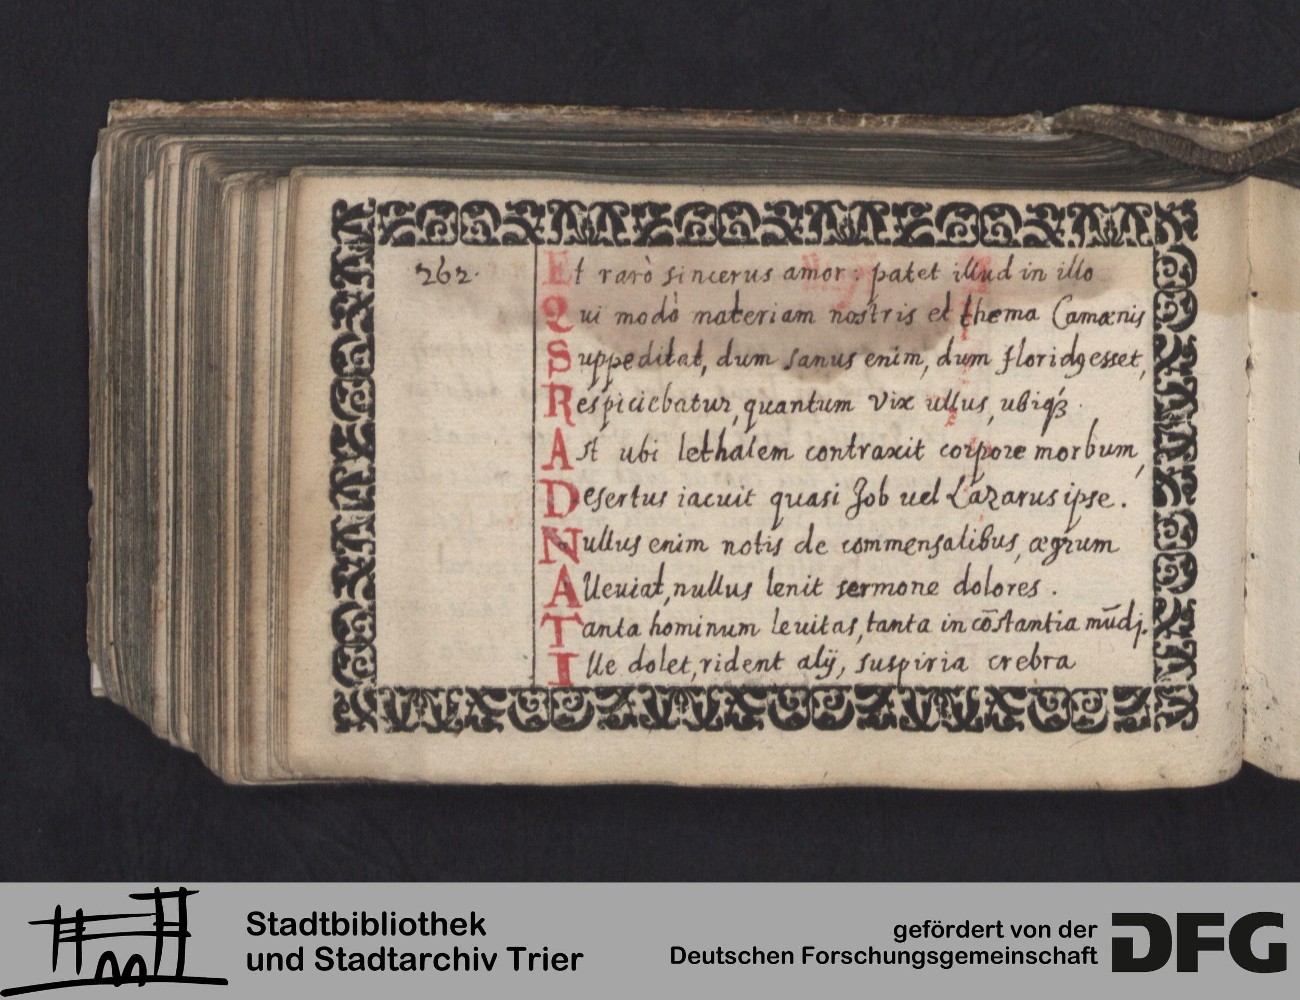 262.
Et rarò sincerus amor: patet illud in illo
Qui modò materiam nostris et thema Camænis
Suppeditat, dum sanus enim, dum floridꝰ esset,
Respiciebatur, quantum vix ullus, ubiqꝫ.
Ast ubi lethalem contraxit corpore morbum,
Desertus iacuit quasi Job uel Lazarus ipse.
Nullus enim notis de commensalibus, ægrum
Alleuiat, nullus lenit sermone dolores.
Tanta hominum leuitas, tanta incōstantia mūdj.
Ille dolet, rident alij, suspiria crebra
Stadtbibliothek
und Stadtarchiv Trier
gefördert von der
Deutschen Forschungsgemeinschaft
DFG